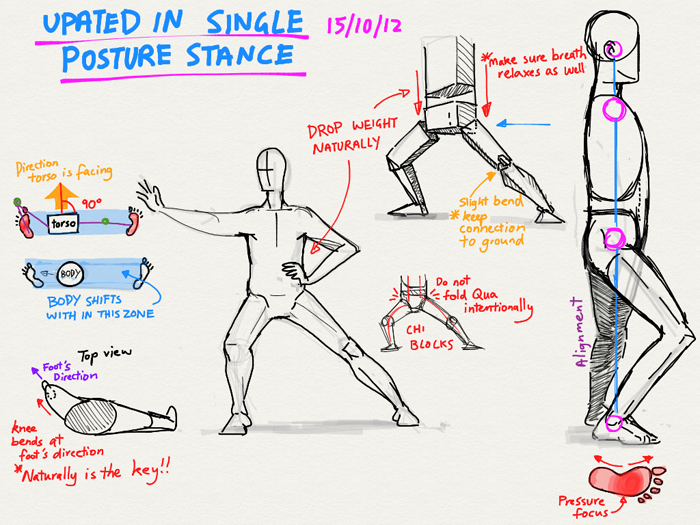 UPATED IN SINGLE
POSTURE STANCE
15/10/12
*Make sure breath
relaxes as well
DROP WEIGHT
NATURALLY
Direction
torso is facing
90°
torso
BODY
BODY SHIFTS
WITH IN THIS ZONE
Slight bend
*keep
connection
to ground
Do not
fold Qua
intentionally
CHI
BLOCKS
Alignment
Top view
Foot's
Direction
knee
bends at
foot's direction
*Naturally is the key!!
Pressure
focus